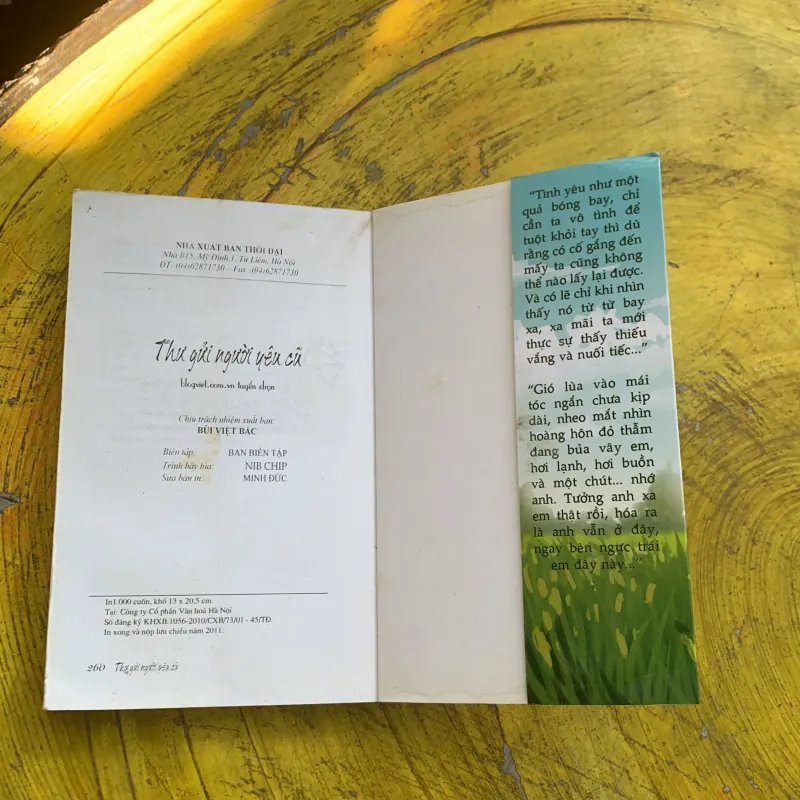 NHÀ XUẤT BẢN THỜI ĐẠI
Nhà B15, Mỹ Đình 1, Từ Liêm, Hà Nội
ĐT: (04)62871730 – Fax: (04)62871730
Thư gửi người yêu cũ
blogviet.com.vn tuyển chọn
Chịu trách nhiệm xuất bản:
BÙI VIỆT BẮC
Biên tập: BAN BIÊN TẬP
Trình bày bìa: NIB CHIP
Sửa bản in: MINH ĐỨC
In1.000 cuốn, khổ 13 x 20,5 cm.
Tại: Công ty Cổ phần Văn hoá Hà Nội
Số đăng ký KHXB:1056-2010/CXB/73/01 - 45/TĐ.
In xong và nộp lưu chiểu năm 2011.
260 Thư gửi người yêu cũ
“Tình yêu như một
quả bóng bay, chỉ
cần ta vô tình để
tuột khỏi tay thì dù
rằng có cố gắng đến
mấy ta cũng không
thể nào lấy lại được.
Và có lẽ chỉ khi nhìn
thấy nó từ từ bay
xa, xa mãi ta mới
thực sự thấy thiếu
vắng và nuối tiếc...”
“Gió lùa vào mái
tóc ngắn chưa kịp
dài, nheo mắt nhìn
hoàng hôn đỏ thẫm
đang bủa vây em,
hơi lạnh, hơi buồn
và một chút... nhớ
anh. Tưởng anh xa
em thật rồi, hóa ra
là anh vẫn ở đây,
ngay bên ngực trái
em đây này...”